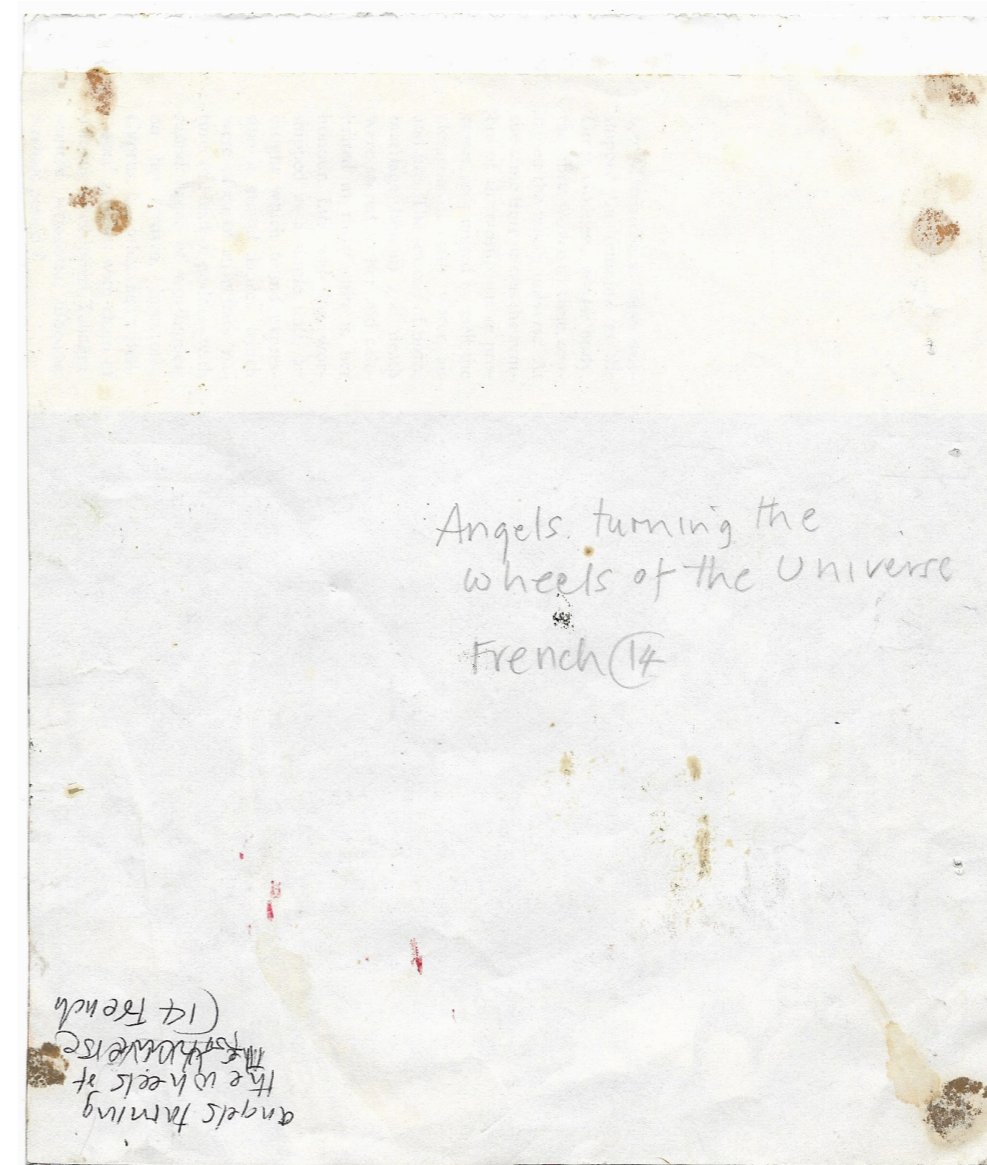 Angels turning the
wheels of the Universe
French 14
angels turning
the wheels of
the universe
(14 French